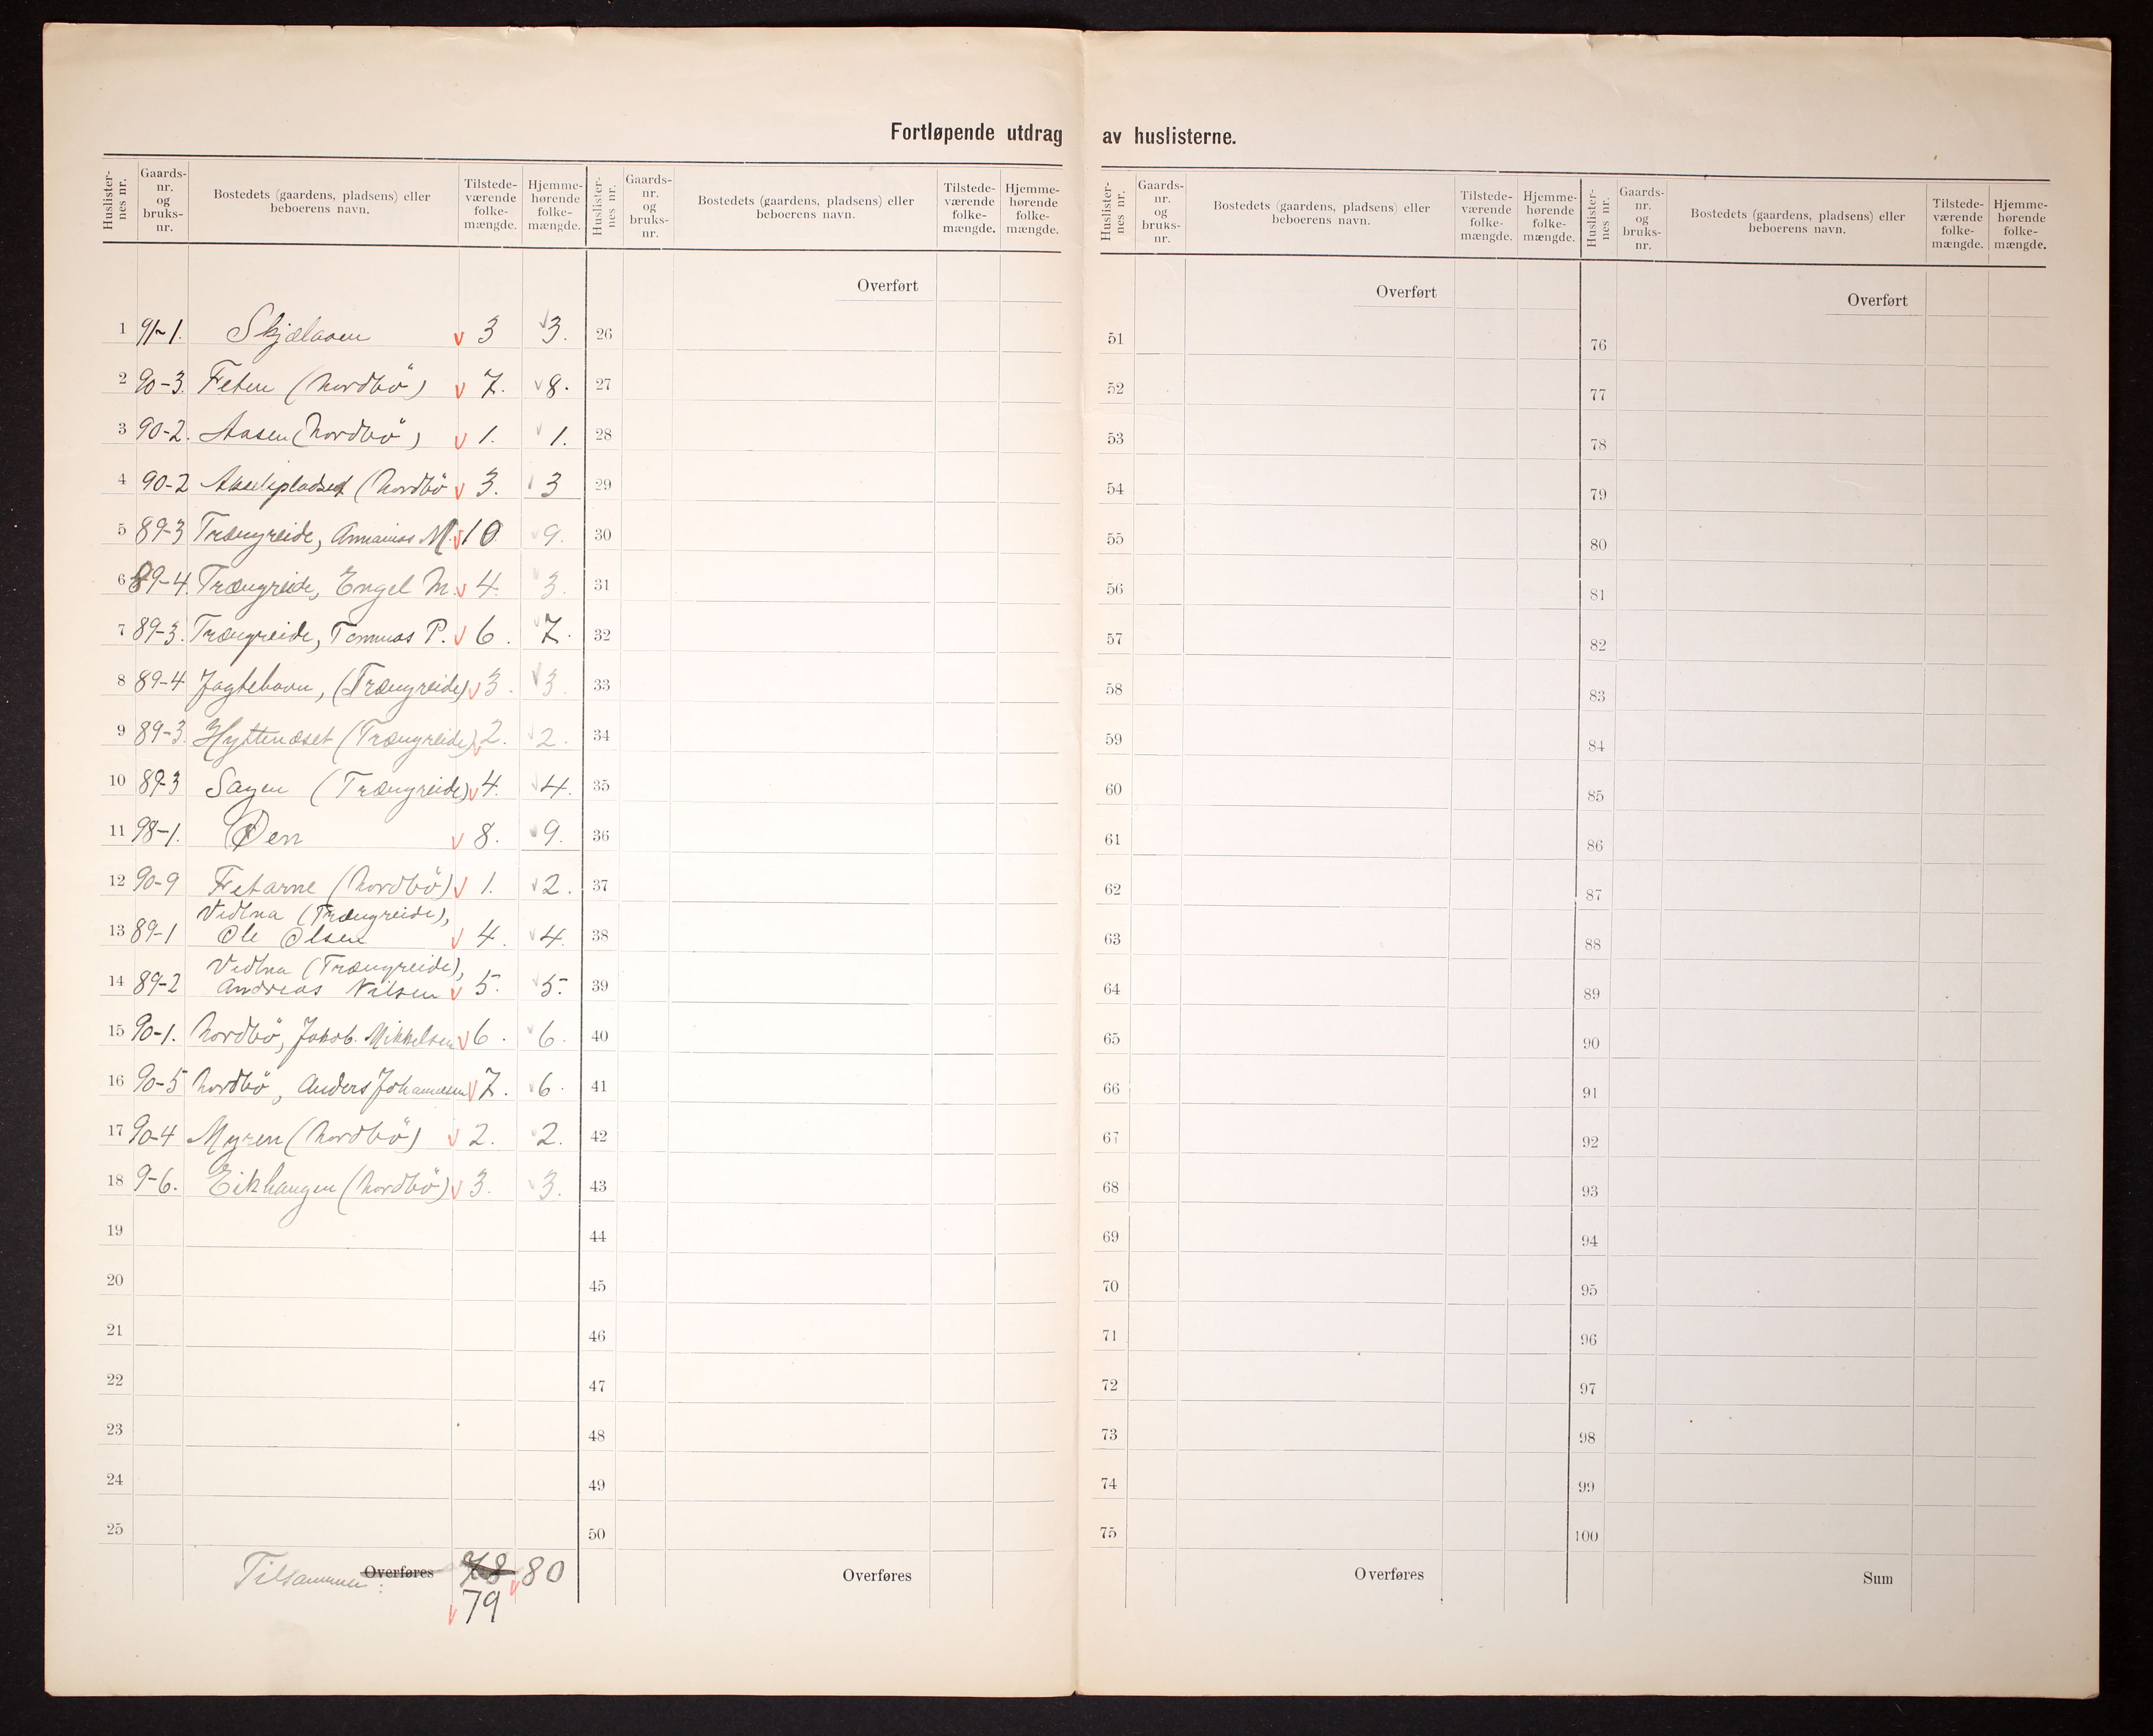 Fortløpende utdrag av huslisterne.
Huslister-nes nr. Gaards-nr. og bruks-nr. Bostedets (gaardens, pladsens) eller beboerens navn. Tilstede-værende folke-mængde. Hjemme-hørende folke-mængde.
1 91-1. Skjelaaen 3 3.
2 90-3. Feten (Nordbö) 7. 8.
3 90-2. Aasen (Nordbö) 1. 1.
4 90-2 (Nordbö 3. 3
5 89-3 Trængreide, Annanias M. 10 9.
6 89-4. Trængreide, Engel M. 4. 3.
7 89-3. Trængreide, Tommas P. 6. 7.
8 89-4 Jagtehavn, (Trængreide) 3. 3
9 89-3. Hyttenæset (Trængreide) 2. 2.
10 89-3 Sagen (Trængreide) 4. 4.
11 98-1. Øen 8. 9.
12 90-9 Fetarne (Nordbö) 1. 2.
Vedlna (Trængreide),
13 89-1 Ole Olsen 4. 4.
Vedlna (Trængreide),
14 89-2 Andreas Nilsen 5. 5.
15 90-1. Nordbö, Jakob Mikkelsen 6. 6.
16 90-5 Nordbö, Anders Johannesen 7. 6.
17 90-4 Myren (Nordbö) 2. 2.
18 9-6. Eikhaugen (Nordbö) 3. 3.
19
20
21
22
23
24
25
Tilsammen: Overføres 78 80
79
Huslister-nes nr. Gaards-nr. og bruks-nr. Bostedets (gaardens, pladsens) eller beboerens navn. Tilstede-værende folke-mængde. Hjemme-hørende folke-mængde.
Overført
26
27
28
29
30
31
32
33
34
35
36
37
38
39
40
41
42
43
44
45
46
47
48
49
50
Overføres
Huslister-nes nr. Gaards-nr. og bruks-nr. Bostedets (gaardens, pladsens) eller beboerens navn. Tilstede-værende folke-mængde. Hjemme-hørende folke-mængde.
Overført
51
52
53
54
55
56
57
58
59
60
61
62
63
64
65
66
67
68
69
70
71
72
73
74
75
Overføres
Huslister-nes nr. Gaards-nr. og bruks-nr. Bostedets (gaardens, pladsens) eller beboerens navn. Tilstede-værende folke-mængde. Hjemme-hørende folke-mængde.
Overført
76
77
78
79
80
81
82
83
84
85
86
87
88
89
90
91
92
93
94
95
96
97
98
99
100
Sum